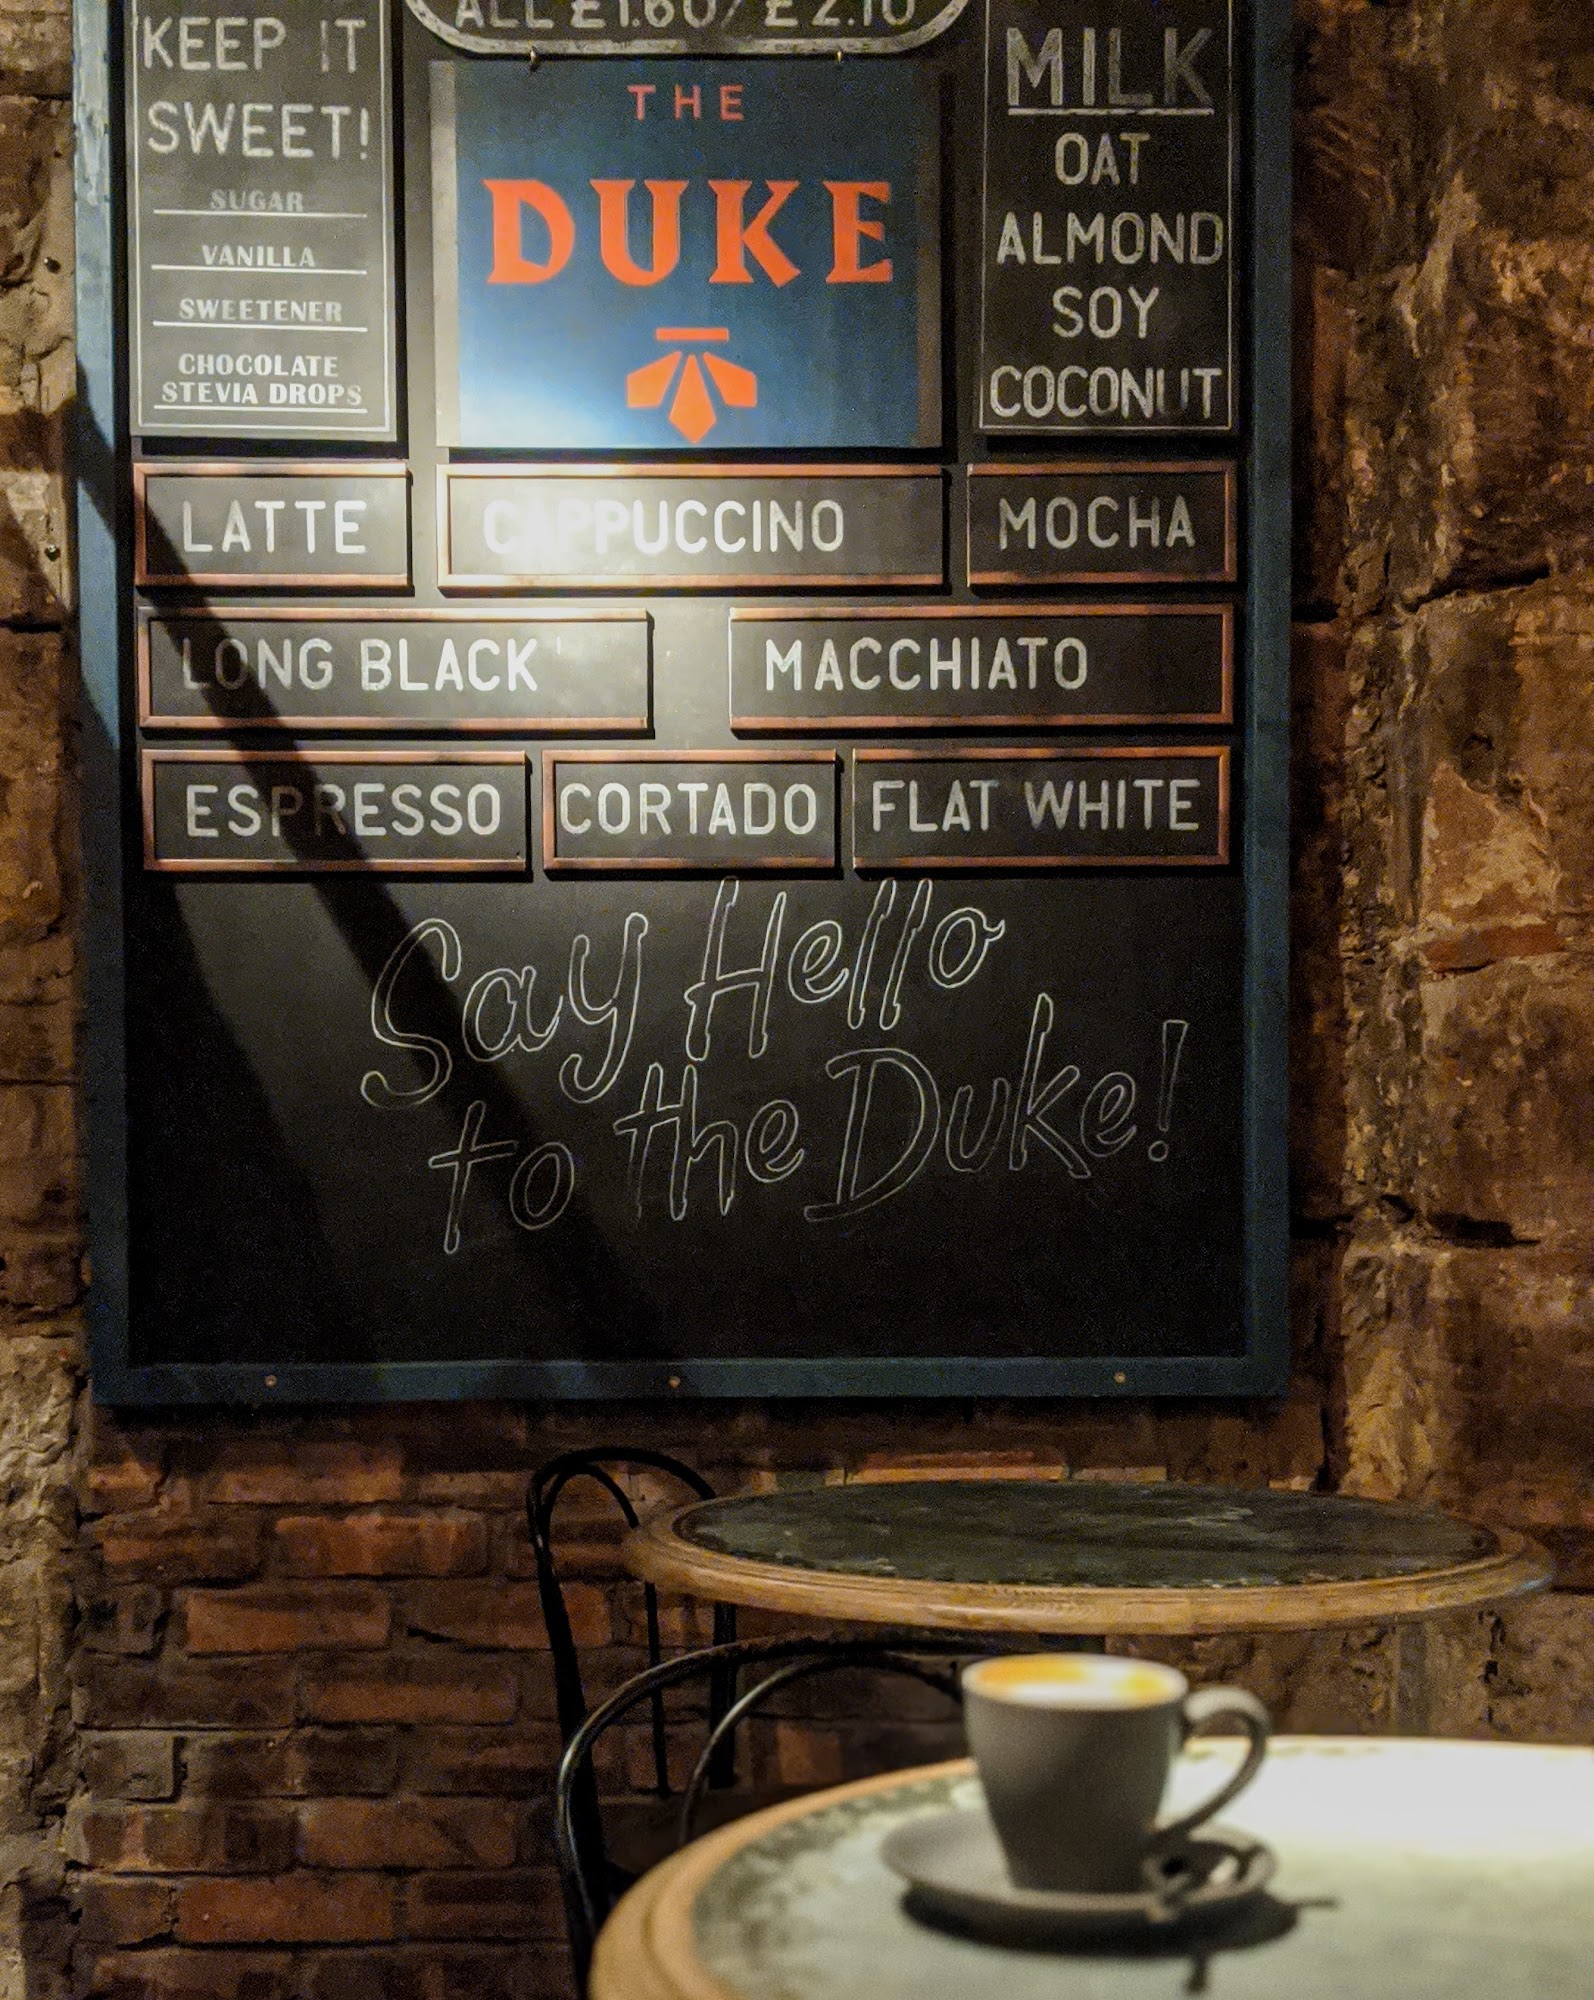 ALL £1.60/£2.10
KEEP IT
SWEET!
SUGAR
VANILLA
SWEETENER
CHOCOLATE
STEVIA DROPS
THE
DUKE
MILK
OAT
ALMOND
SOY
COCONUT
LATTE
CAPPUCCINO
MOCHA
LONG BLACK
MACCHIATO
ESPRESSO
CORTADO
FLAT WHITE
Say Hello
to the Duke!